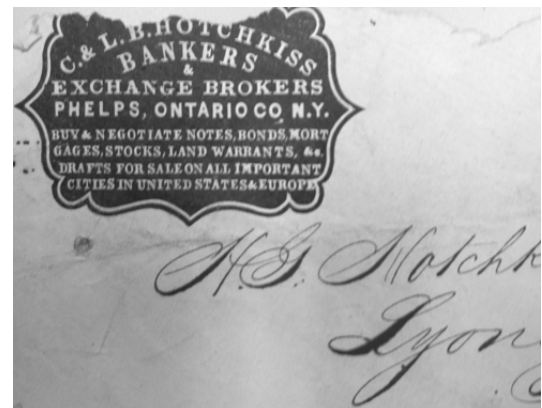 C. & L. B. HOTCHKISS
BANKERS
&
EXCHANGE BROKERS
PHELPS, ONTARIO CO N.Y.
BUY & NEGOTIATE NOTES, BONDS, MORT
GAGES, STOCKS, LAND WARRANTS, &c.
DRAFTS FOR SALE ON ALL IMPORTANT
CITIES IN UNITED STATES & EUROPE
H. G. Hotchk
Lyon